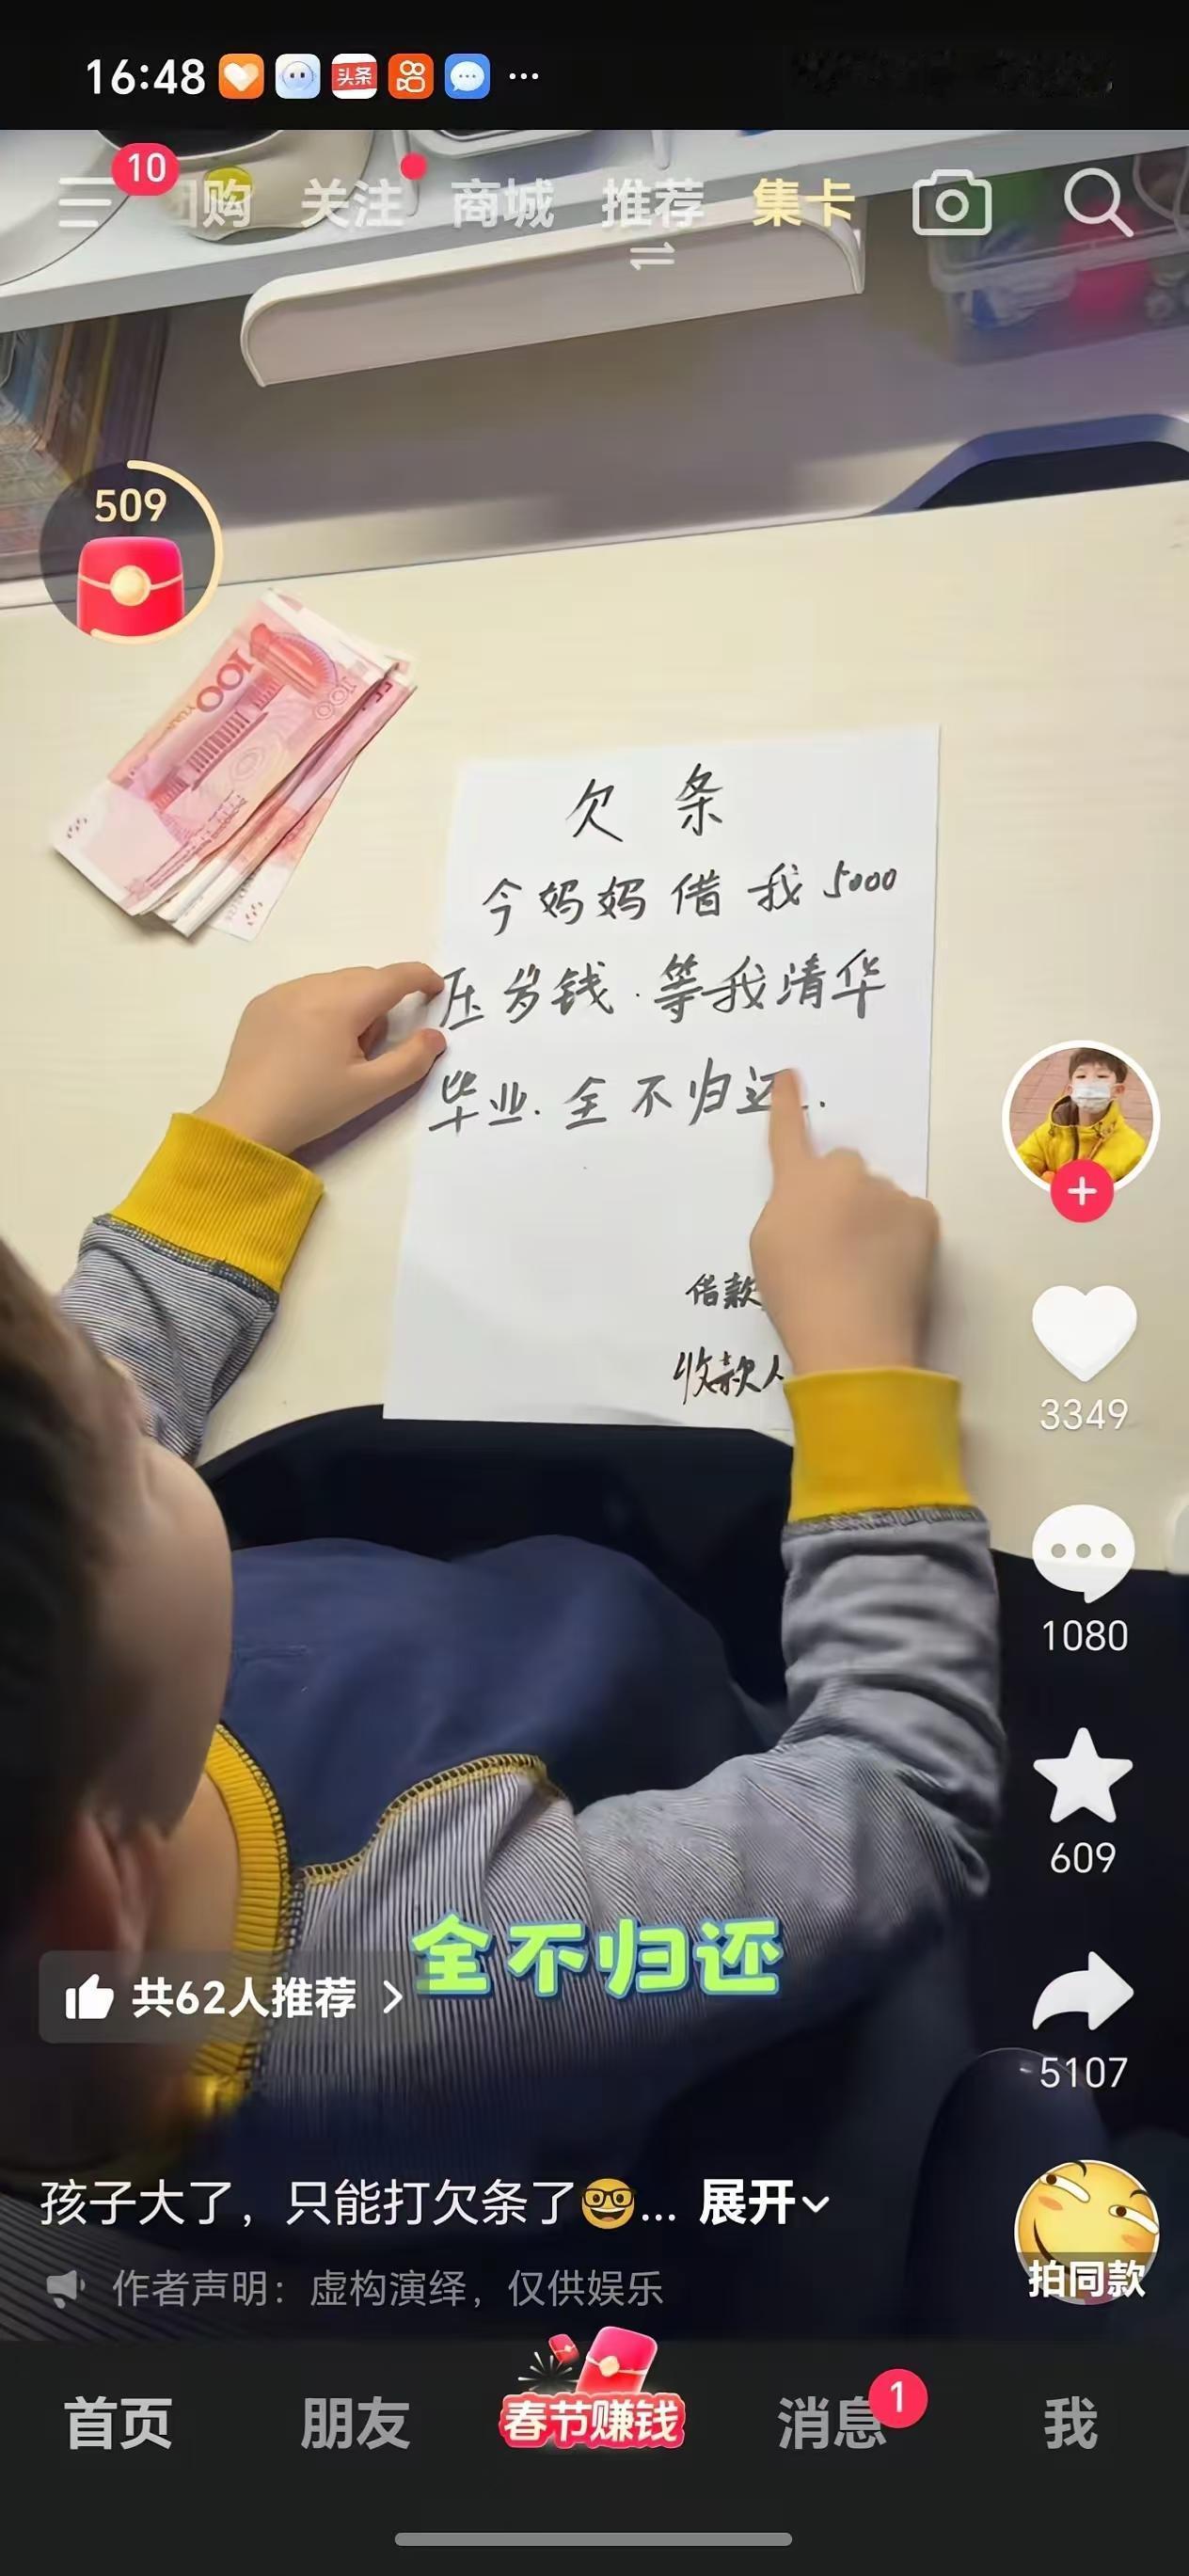 16:48
头条
10
购 关注 商城 推荐 集卡
509
100
YUAN
100
欠条
今妈妈借我5000
压岁钱.等我清华
毕业.全不归还.
借款
收款人
3349
1080
609
5107
全不归还
共62人推荐
孩子大了，只能打欠条了🤓... 展开
作者声明：虚构演绎，仅供娱乐
拍同款
首页 朋友 春节赚钱 消息 1 我